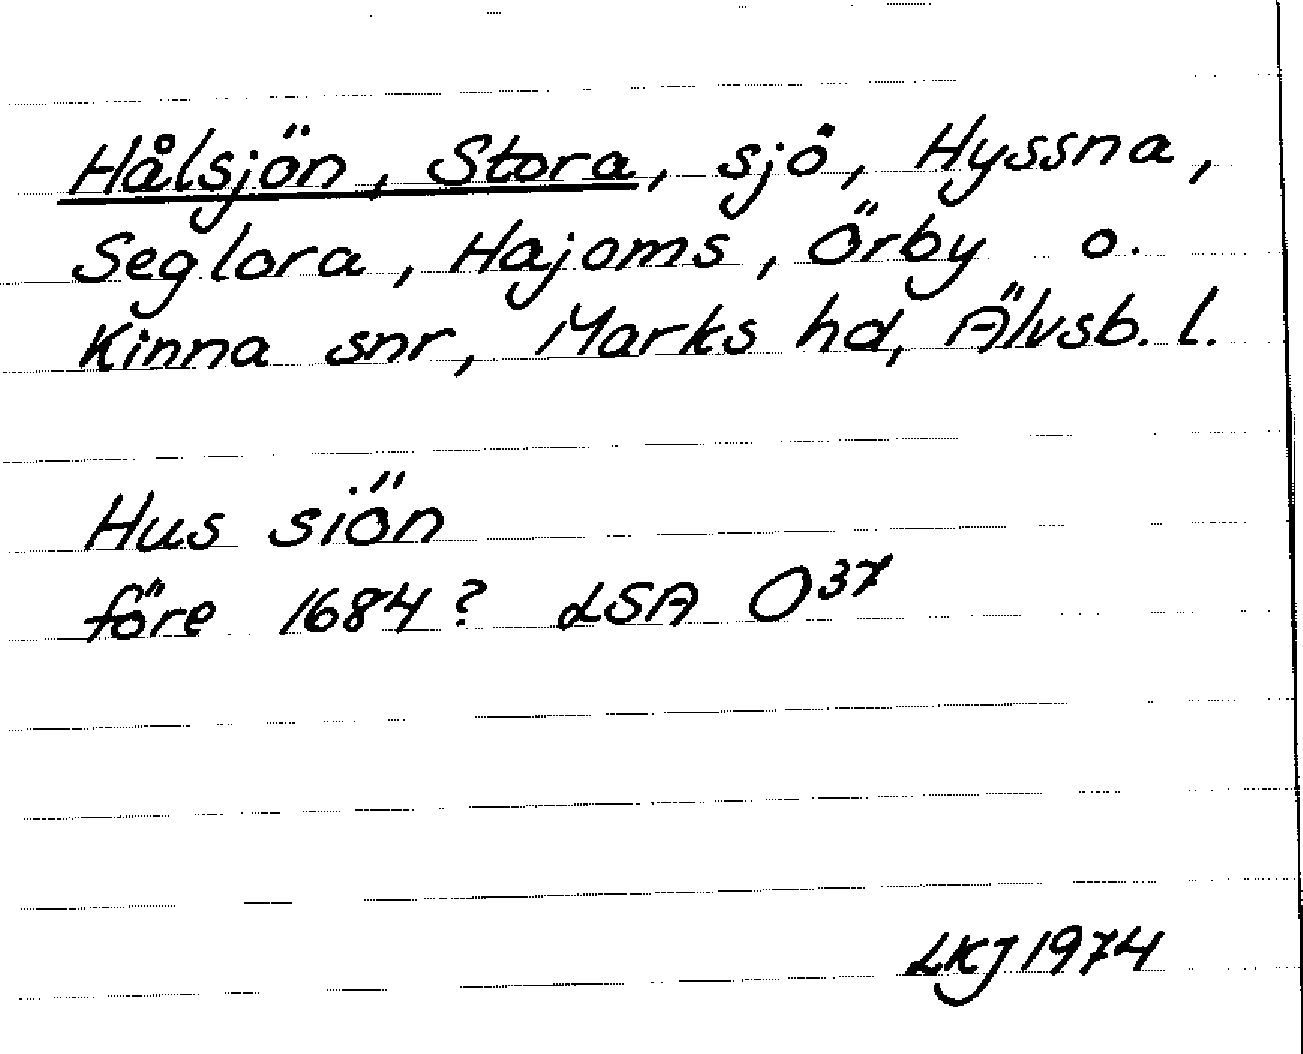 Hålsjön, Stora, sjö, Hyssna,
Seglora, Hajoms, Örby o.
Kinna snr, Marks hd, Älvsb. l.
Hus siön
före 1684? LSA O37
LKJ 1974